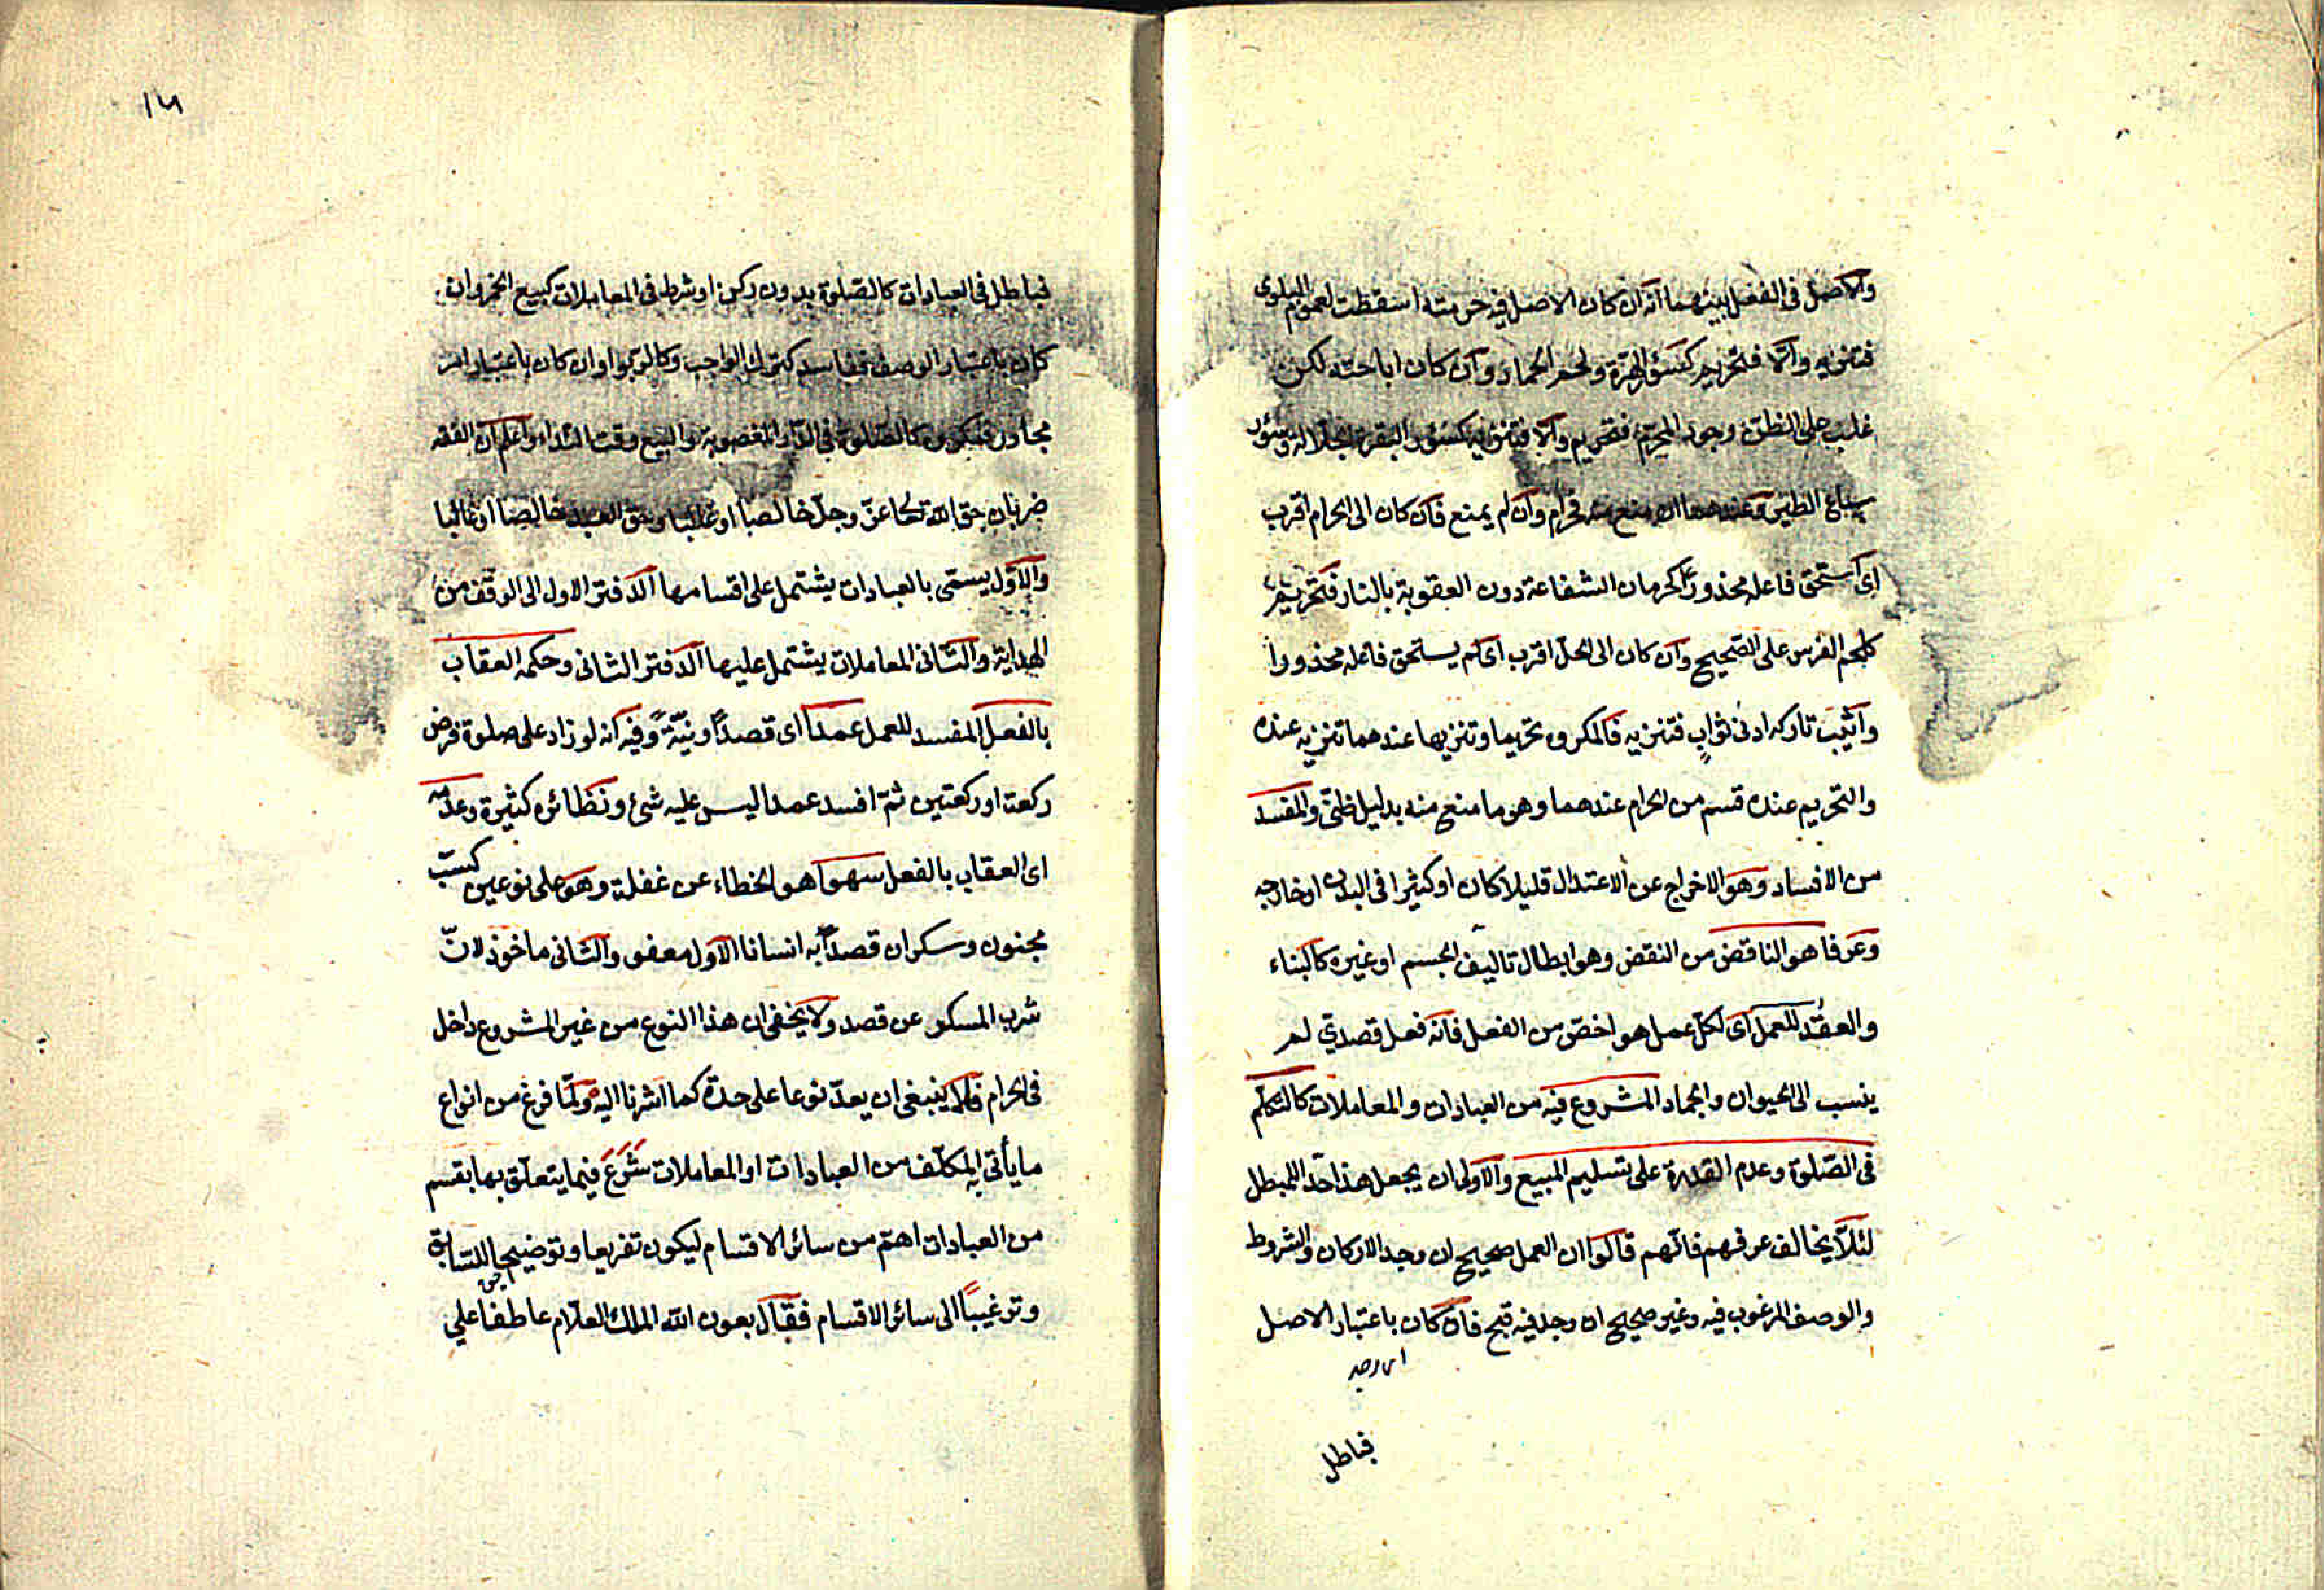 والاصل في الفصل بينهما انه ان كان الاصل فيه حرمته اسقطت لعموم البلوى
فتنزيه والّا فتحريم كسؤر الهرة ولحم الحمار وان كان اباحته لكن
غلب على الظن وجود المحرم فتحريم والّا فتنزيه كسؤر البقرة الجلالة وسؤر
سباع الطير وعندهما ان منع منه فحرام وان لم يمنع فان كان الى الحرام اقرب
اى استحق فاعله محذورا كحرمان الشفاعة دون العقوبة بالنار فتحريم
كلحم الفرس على الصحيح وان كان الى الحل اقرب اى لم يستحق فاعله محذورا
واثيب تاركه ادنى ثوابٍ فتنزيه فالمكروه تحريما وتنزيها عندهما تنزيه عنده
والتحريم عنده قسم من الحرام عندهما وهو ما منع منه بدليل ظنّى والمفسد
من الافساد وهو الاخراج عن الاعتدال قليلا كان او كثيرا فى البدن او خارجه
وعرفا هو الناقض من النقض وهو ابطال تاليف الجسم او غيره كالبناء
والعقد للعمل اى لكل عمل هو اخصّ من الفعل فانه فعل قصديّ لم
ينسب الى الحيوان والجماد المشروع فيه من العبادات والمعاملات كالتكلّم
فى الصّلوة وعدم القدرة على تسليم المبيع والاولى ان يجعل هذا حدّ المبطل
لئلّا يخالف عرفهم فانّهم قالوا ان العمل صحيح ان وجد الاركان والشروط
والوصف المرغوب فيه وغير صحيح ان وجد فيه قبح فان كان باعتبار الاصل
فباطل
١٣
فباطل فى العبادات كالصّلوة بدون ركن او شرط فى المعاملات كبيع الخمر وان
كان باعتبار الوصف ففاسد كترك الواجب وكالربوا وان كان باعتبار امر
مجاور فمكروه كالصّلوة فى الدار المغصوبة والبيع وقت النداء واعلم ان الفقه
ضربان حق الله تعالى عزّ وجلّ خالصا او غالبا وحق العبد خالصا او غالبا
والاوّل يسمّى بالعبادات يشتمل على اقسامها الدفتر الاول الى الوقف من
الهداية والثّانى المعاملات يشتمل عليها الدفتر الثانى وحكمه العقاب
بالفعل المفسد للعمل عمدا اى قصدًا ونيّةً وفيه انه لو زاد على صلوة فرض
ركعة او ركعتين ثمّ افسد عمدا ليس عليه شئ ونظائره كثيرة وعدمه
اى العقاب بالفعل سهوا هو الخطاء عن غفلة وهو على نوعين كسبّ
مجنون وسكران قصدًا به انسانا الاوّل معفو والثّانى ماخوذ لانّ
شرب المسكر عن قصد ولا يخفى ان هذا النوع من غير المشروع داخل
فى الحرام فلا ينبغى ان يعدّ نوعا على حدة كما اشرنا اليه ولمّا فرغ من انواع
ما يأتى به المكلّف من العبادات او المعاملات شَرَعَ فيما يتعلّق بها بقسم
من العبادات اهتم من سائر الاقسام ليكون تفريعا وتوضيحا للسّابق
وترغيبًا الى سائر الاقسام فقال بعون الله الملك العلّام عاطفا على